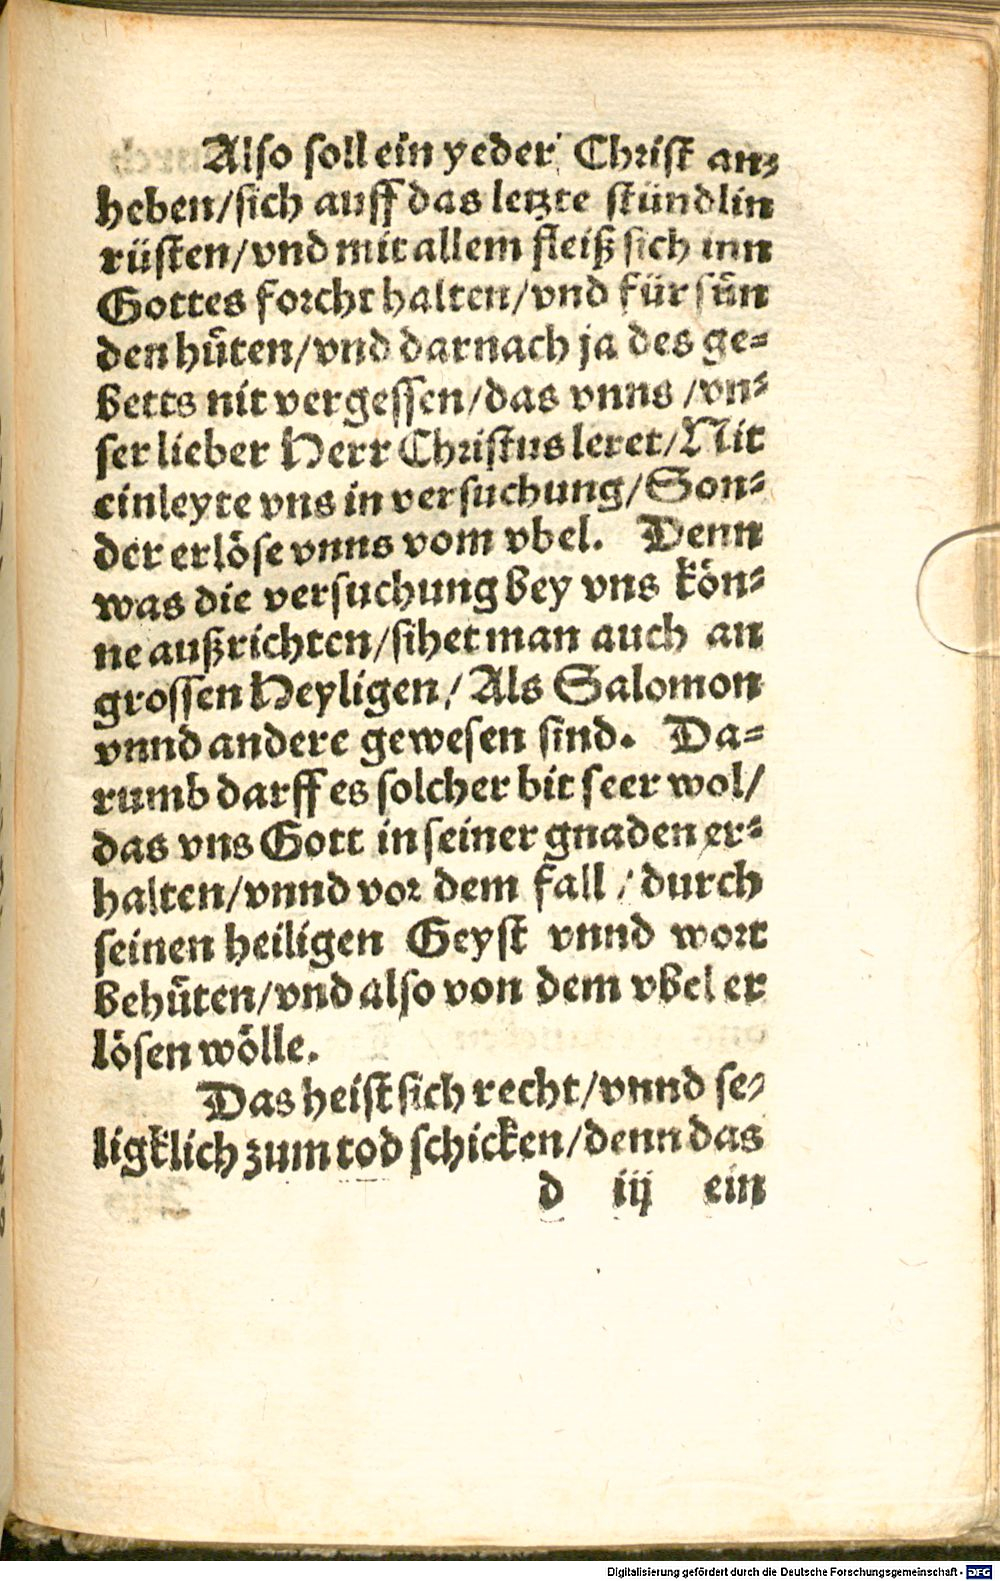 Also soll ein yeder Christ an⸗
heben/sich auff das letzte stündlin
rüsten/vnd mit allem fleiß sich inn
Gottes forcht halten/vnd für sün
den hüten/vnd darnach ja des ge⸗
betts nit vergessen/das vnns/vn⸗
ser lieber Herr Christus leret/Nit
einleyte vns in versuchung/Son⸗
der erlöse vnns vom vbel. Denn
was die versuchung bey vns kön⸗
ne außrichten/sihet man auch an
grossen Heyligen/Als Salomon
vnnd andere gewesen sind. Da⸗
rumb darff es solcher bit seer wol/
das vns Gott in seiner gnaden er⸗
halten/vnnd vor dem fall/durch
seinen heiligen Geyst vnnd wort
behüten/vnd also von dem vbel er
lösen wölle.
Das heist sich recht/vnnd se⸗
ligklich zum tod schicken/denn das
d iij ein
Digitalisierung gefördert durch die Deutsche Forschungsgemeinschaft - DFG